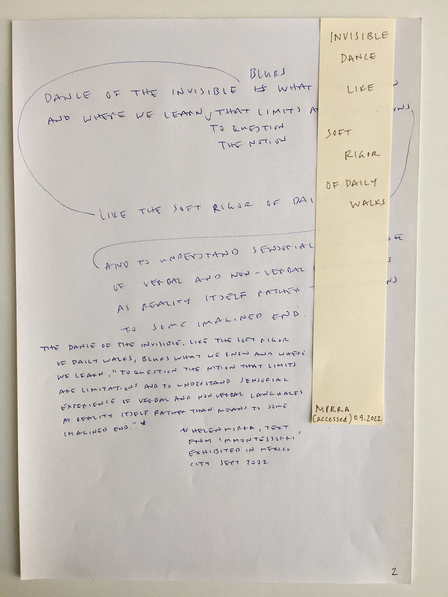 BLURS
DANCE OF THE INVISIBLE IS WHAT
AND WHERE WE LEARN, THAT LIMITS
TO QUESTION
THE NOTION
LIKE THE SOFT RIGOR OF DAI
AND TO UNDERSTAND SENSORIAL
OF VERBAL AND NON-VERBAL
AS REALITY ITSELF RATHER
TO SOME IMAGINED END
THE DANCE OF THE INVISIBLE, LIKE THE SOFT RIGOR
OF DAILY WALKS, BLURS WHAT WE KNOW AND WHERE
WE LEARN, "TO QUESTION THE NOTION THAT LIMITS
ARE LIMITATIONS AND TO UNDERSTAND SENSORIAL
EXPERIENCE OF VERBAL AND NONVERBAL LANGUAGES
AS REALITY ITSELF RATHER THAN MEANS TO SOME
IMAGINED END"*
HELEN MIRRA, TEXT
FROM
EXHIBITED IN MEXICO
CITY SEPT 2022
INVISIBLE
DANCE
LIKE
SOFT
RIGOR
OF DAILY
WALKS
MIRRA
(accessed) 09.2022
2